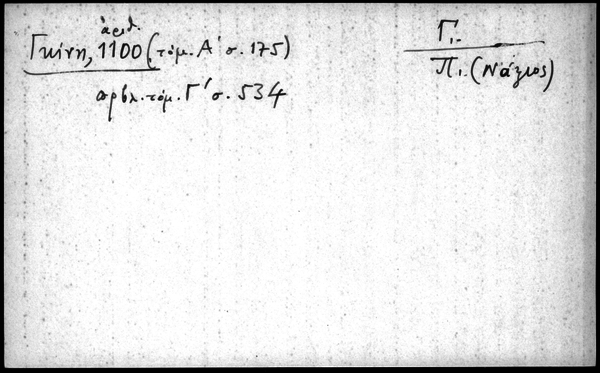 ἀριθ.
Γκίνη, 1100 (τόμ. Α΄ σ. 175)
πρβλ. τόμ. Γ΄ σ. 534
Γ.
Π. (Νάζιος)